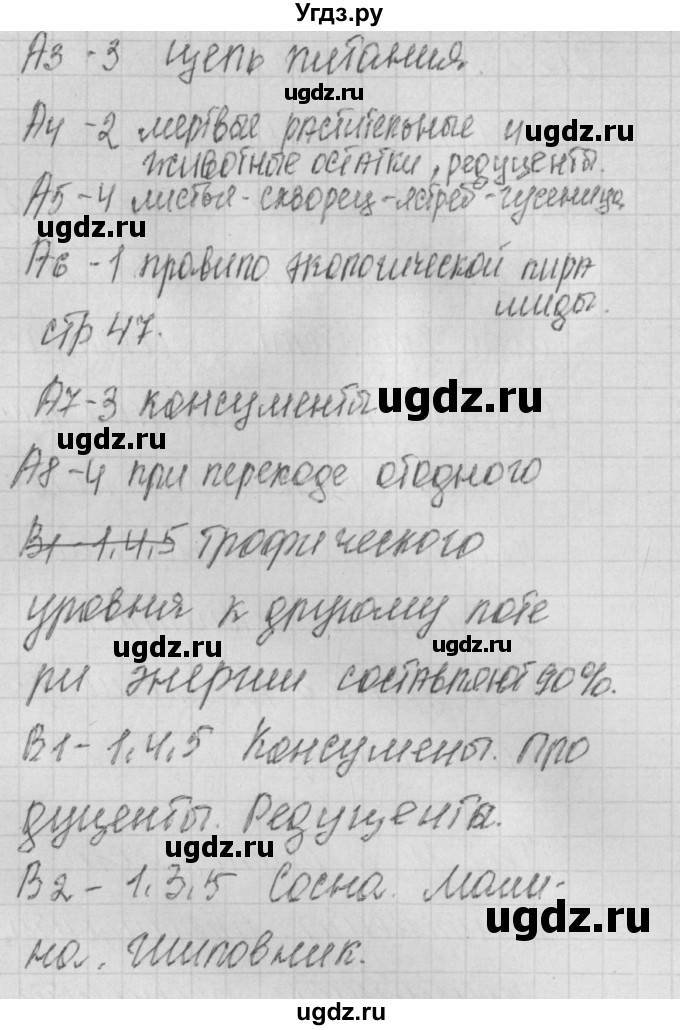 Угдз.ру
А3 - 3 цепь питания.
ugdz.ru
А4 - 2 мертвые растительные и
ugdz.ru
животные остатки, редуценты.
А5 - 4 листья - скворец - ястреб - гусеница
ugdz.ru
ugdz.ru
А6 - 1 правило экологической пира
миды.
стр 47.
А7-3 консументы
ugdz.ru
ugdz.ru
А8-4 при переходе отодного
В1 - 1,4,5 трофического
уровня к другому поте
ugdz.ru
ugdz.ru
ри энергии составляют 90%.
В1 - 1,4,5 Консумены. Про
дуценты. Редуцента.
ugdz.ru
В2 - 1,3,5 Сосна. Мали-
ugdz.ru
на. Шиповник.
ugdz.ru